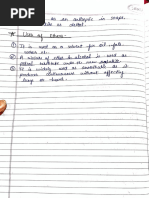 as an antiseptic in soaps,
as dettol.
* Use of Ethers:-
① It is used as a solvent for oil, fats
② A mixture of ether & alcohol is used as
petrol substitute under the name
③ It is widely used as anaesthetic as it
produces unconsciousness without affecting
lungs or heart.